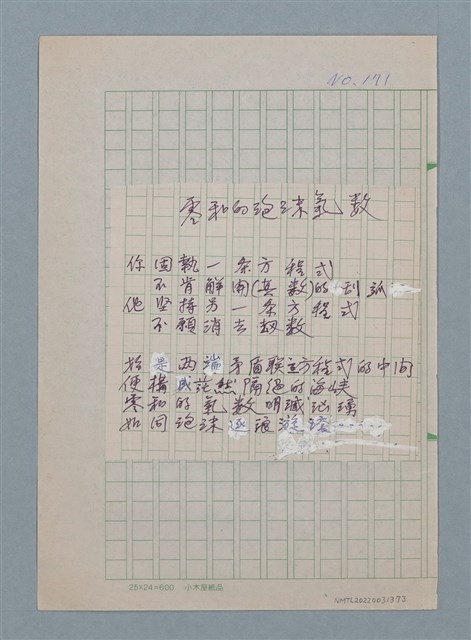 NO. 171
零和的泡沫氣数
你固執一条方程式
不肯解開(其数)的刮弧
他坚持另一条方程式
不願消去劫数
於是两端矛盾联立方程式的中间
便構成茫然隔絕的海峽
零和的氣数明滅
如同泡沫逐浪漩
25×24=600 小木屋紙品
NMTL20220031373